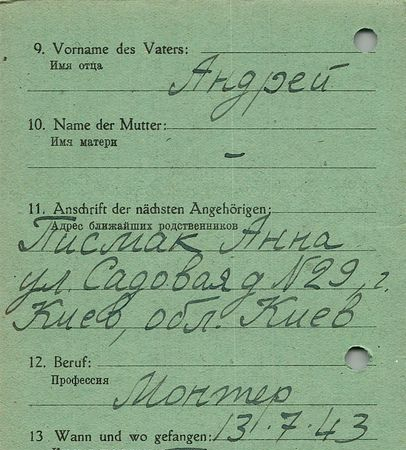 9. Vorname des Vaters:
Имя отца
Андрей
10. Name der Mutter:
Имя матери
–
11. Anschrift der nächsten Angehörigen:
Адрес ближайших родственников
Письмак Анна
ул. Садовая д N29, г.
Киев, обл. Киев
12. Beruf:
Профессия
Монтер
13 Wann und wo gefangen: 13.7.43